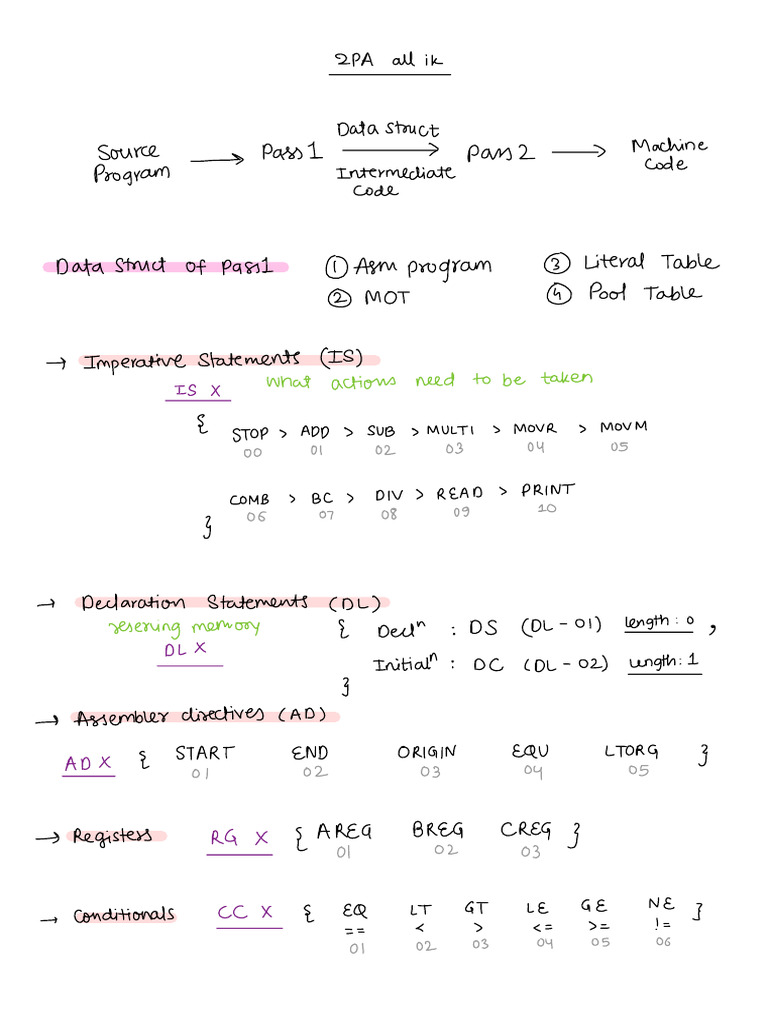 2PA all ik
Source Program → Pass 1 → Data Struct Intermediate Code → Pass 2 → Machine Code
Data Struct of Pass1 ① Asm program ③ Literal Table
② MOT ④ Pool Table
→ Imperative Statements (IS)
IS X what actions need to be taken
{ STOP > ADD > SUB > MULTI > MOVR > MOVM
00 01 02 03 04 05
COMB > BC > DIV > READ > PRINT
06 07 08 09 10
}
→ Declaration Statements (DL)
reserving memory { Declⁿ : DS (DL - 01) length : 0 ,
DL X Initialⁿ : DC (DL - 02) length : 1
}
→ Assembler directives (AD)
AD X { START END ORIGIN EQU LTORG }
01 02 03 04 05
→ Registers RG X { AREG BREG CREG }
01 02 03
→ Conditionals CC X { EQ LT GT LE GE NE }
== < > <= >= !=
01 02 03 04 05 06